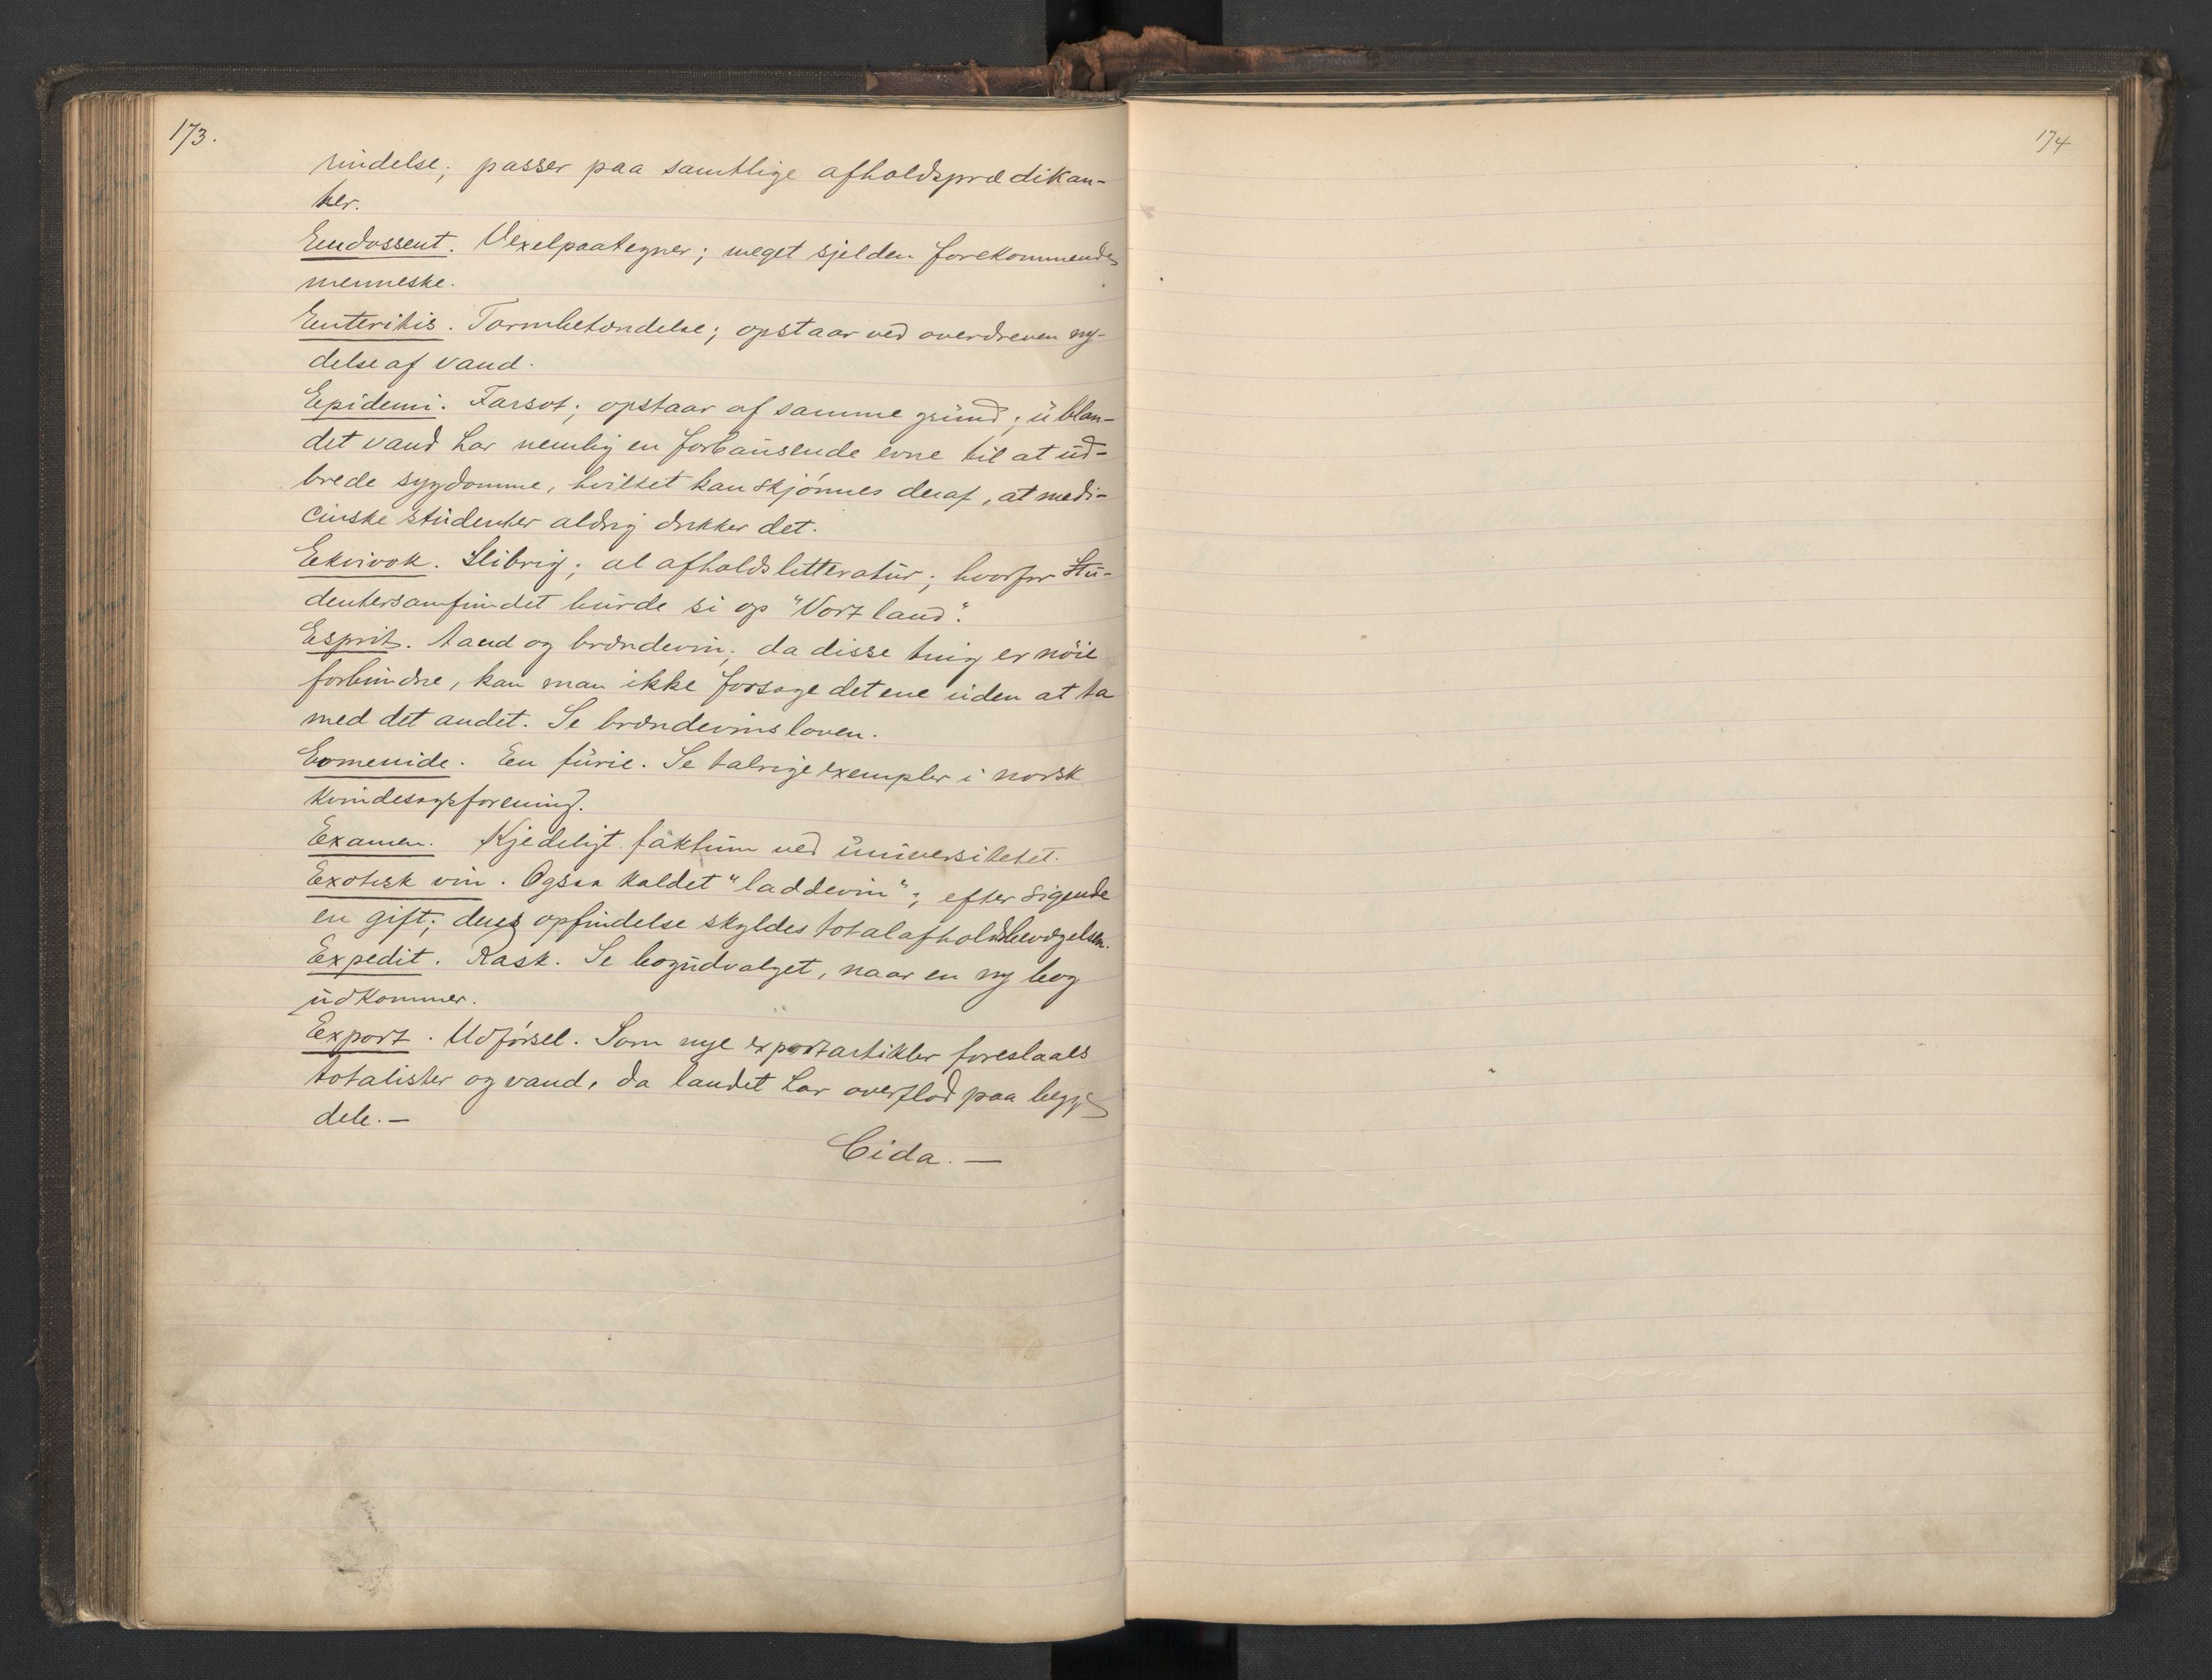 173.
rindelse; passer paa samtlige afholdsprædikan-
ter.
Endossent. Vexelpaategner; meget sjelden forekommende
menneske.
Enteritis. Tarmbetændelse; opstaar ved overdreven ny-
delse af vand.
Epidemi. Farsot; opstaar af samme grund; ublan-
det vand har nemlig en forbausende evne til at ud-
brede sygdomme, hvilket kan skjønnes deraf, at medi-
cinske studenter aldrig drikker det.
Ekvivok. Slibrig; al afholdslitteratur; hvorfor Stu-
dentersamfundet burde si op "Vort land".
Esprit. Aand og brændevin; da disse ting er nöie
forbundne, kan man ikke forsage det ene uden at ta
med det andet. Se brændevinsloven.
Eumenide. En furie. Se talrige exempler i norsk
kvindesagsforening.
Examen. Kjedeligt faktum ved universitetet.
Exotisk vin. Ogsaa kaldet "laddevin"; efter sigende
en gift; dens opfindelse skyldes totalafholdsbevægelsen.
Expedit. Rask. Se bogudvalget, naar en ny bog
udkommer.
Export. Udførsel. Som nye exportartikler foreslaaes
totalister og vand, da landet har overflod paa begge
dele.—
Cida.—
174